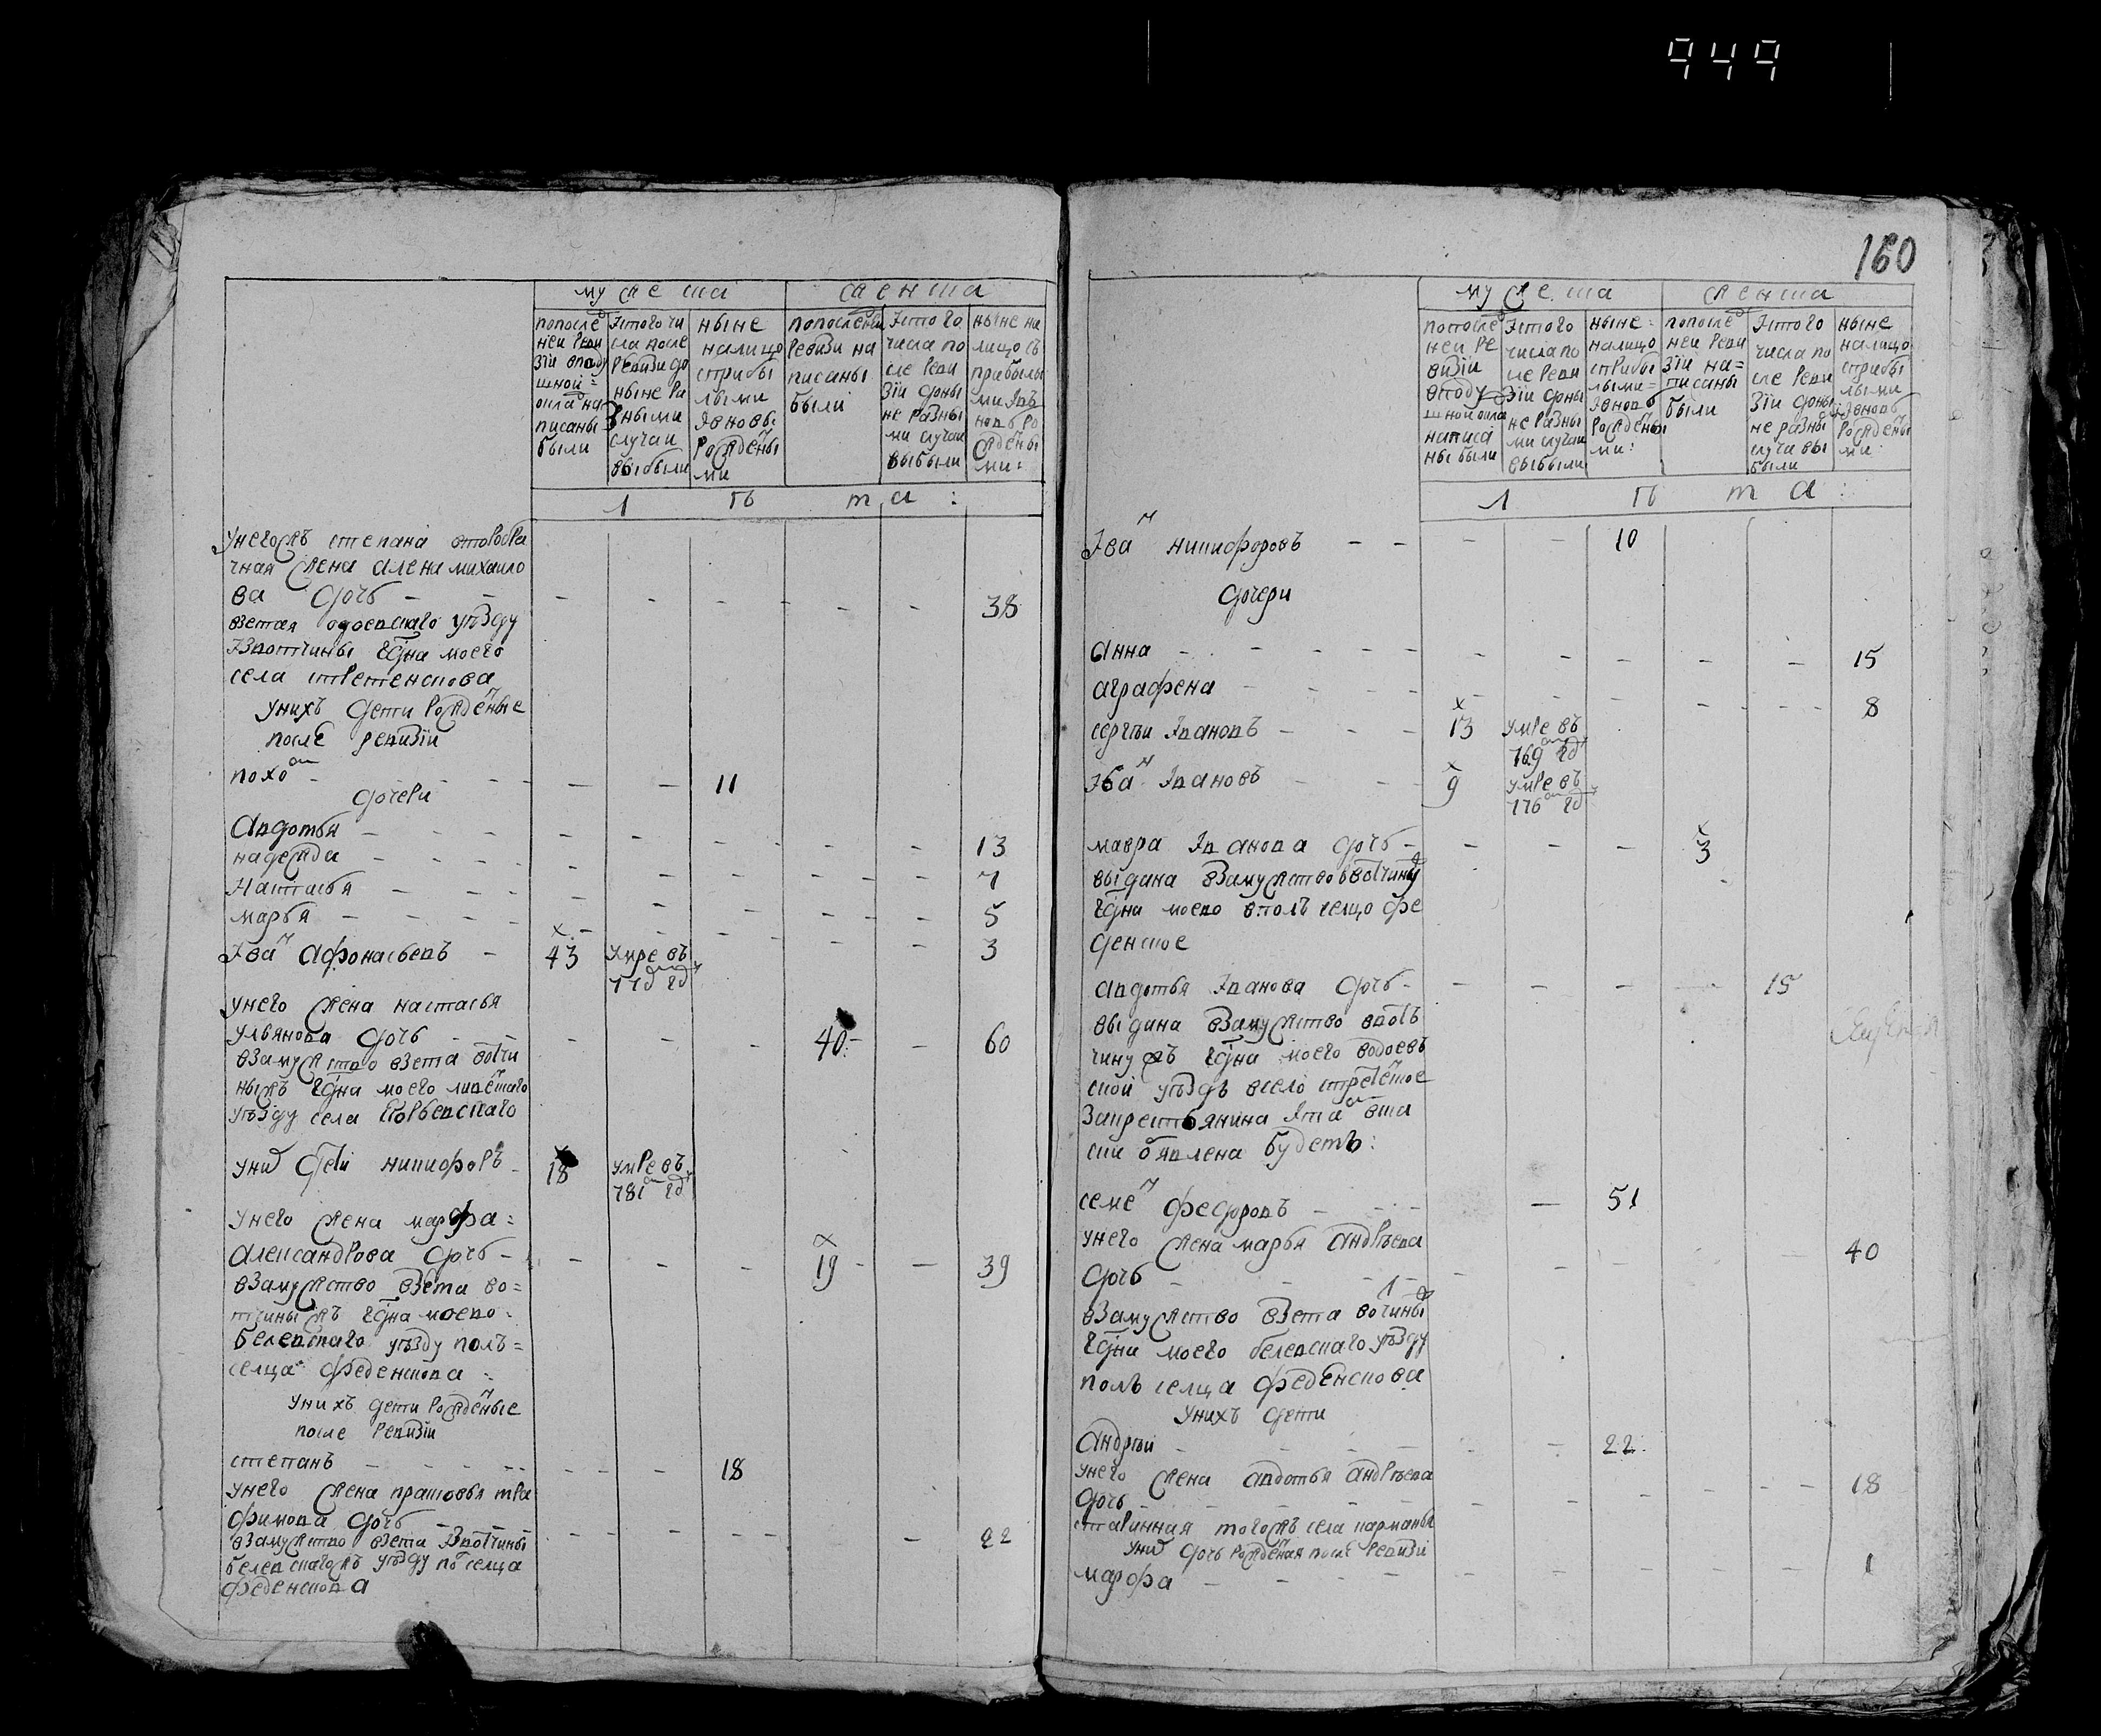 949
160
мужеска
женска
попослѣд
ней реви
зіи вподу
шной =
окладъ на
писаны
были
изтого чи
сла после
ревизи до
ныне ра
зными
случаи
выбыли
ныне
налицо
сприбы
лыми
изновь
рожденны
ми
попоследней
ревизи на
писаны
были
изтого
числа по
сле реви
зіи доны
не разны
ми случаи
выбыли
ныне на
лицо съ
прибылы
ми изъ
новь ро
жденны
ми:
л ѣ т а :
унегожъ степана второбра
чная жена алена михаило
ва дочь - - - - - - - - 38
взетая одоевскаго уѣзду
извотчины гдна моего
села стретенскова
унихъ дети рожденные
после ревизіи
пахом - - - - - - 11
дочери
авдотья - - - - - - - - 13
надежда - - - - - - - - 7
настасья - - - - - - - - 5
марья - - - - - - - - 3
Иван афонасьевъ - 43 умре въ
77д гд
унего жена настасья
ульянова дочь - - - - - 40 - - 60
взамужство взета вотчи
ныжъ гдна моего
уѣзду села
уних дети никифоръ - 18 умре въ
781м гд
унего жена марфа =
александрова дочь - - - - - 19 - - 39
взамужство взета во=
тчиныжъ гдна моево -
белевскаго уѣзду полъ=
селца феденскова =
унихъ дети рожденные
после ревизіи
степанъ - - - - - - 18
унего жена прасковья тра
фимова дочь - - - - - - - 22
взамужство взета извотчины
белевскагожъ уѣзду полселца
феденскова
мужеска
женска
попослѣд
ней ре
визіи
вподу
шной окла
написа
ны были
изтого
числа по
сле реви
зіи доны
не разны
ми случаи
выбыли
ныне =
налицо
сприбы
лыми =
изновь
рожденны
ми:
попослѣд
ней реви
зіи на=
писаны
были
изтого
числа по
сле реви
зіи доны
не разны
случа вы
были
ныне
налицо
сприбы
лыми
изновь
рожденны
ми
л ѣ т а :
Иван никифоровъ - - - - 10
дочери
анна - - - - - - - - 15
аграфена - - - - - - - - 8
сергѣи Ивановъ - - - 13 умре въ
769м гд
Иван Ивановъ - - 9 умре въ
776м гд
мавра Иванова дочь - - - - 3
выдана взамужство ввотчину
гдна моево вполъ селцо фе
денское
авдотья Иванова дочь - - - - - 15
выдана взамужство ввот
чину жъ гдна моего водоевъ
ской уѣздъ всело стретенское
закрестьянина Ита
ски обявлена будетъ:
семен федоровъ - - - - 51
унего жена марья андрѣева
дочь - - - - - - - - 40
взамужство взета вотчины
гдна моего белевскаго уѣзду
полъ селца феденскова
унихъ дети
андрѣи - - - - - - 22
унего жена авдотья андрѣева
дочь - - - - - - - - 18
старинная тогожъ села
уних дочь рожденая после ревизи
марфа - - - - - - - - 1